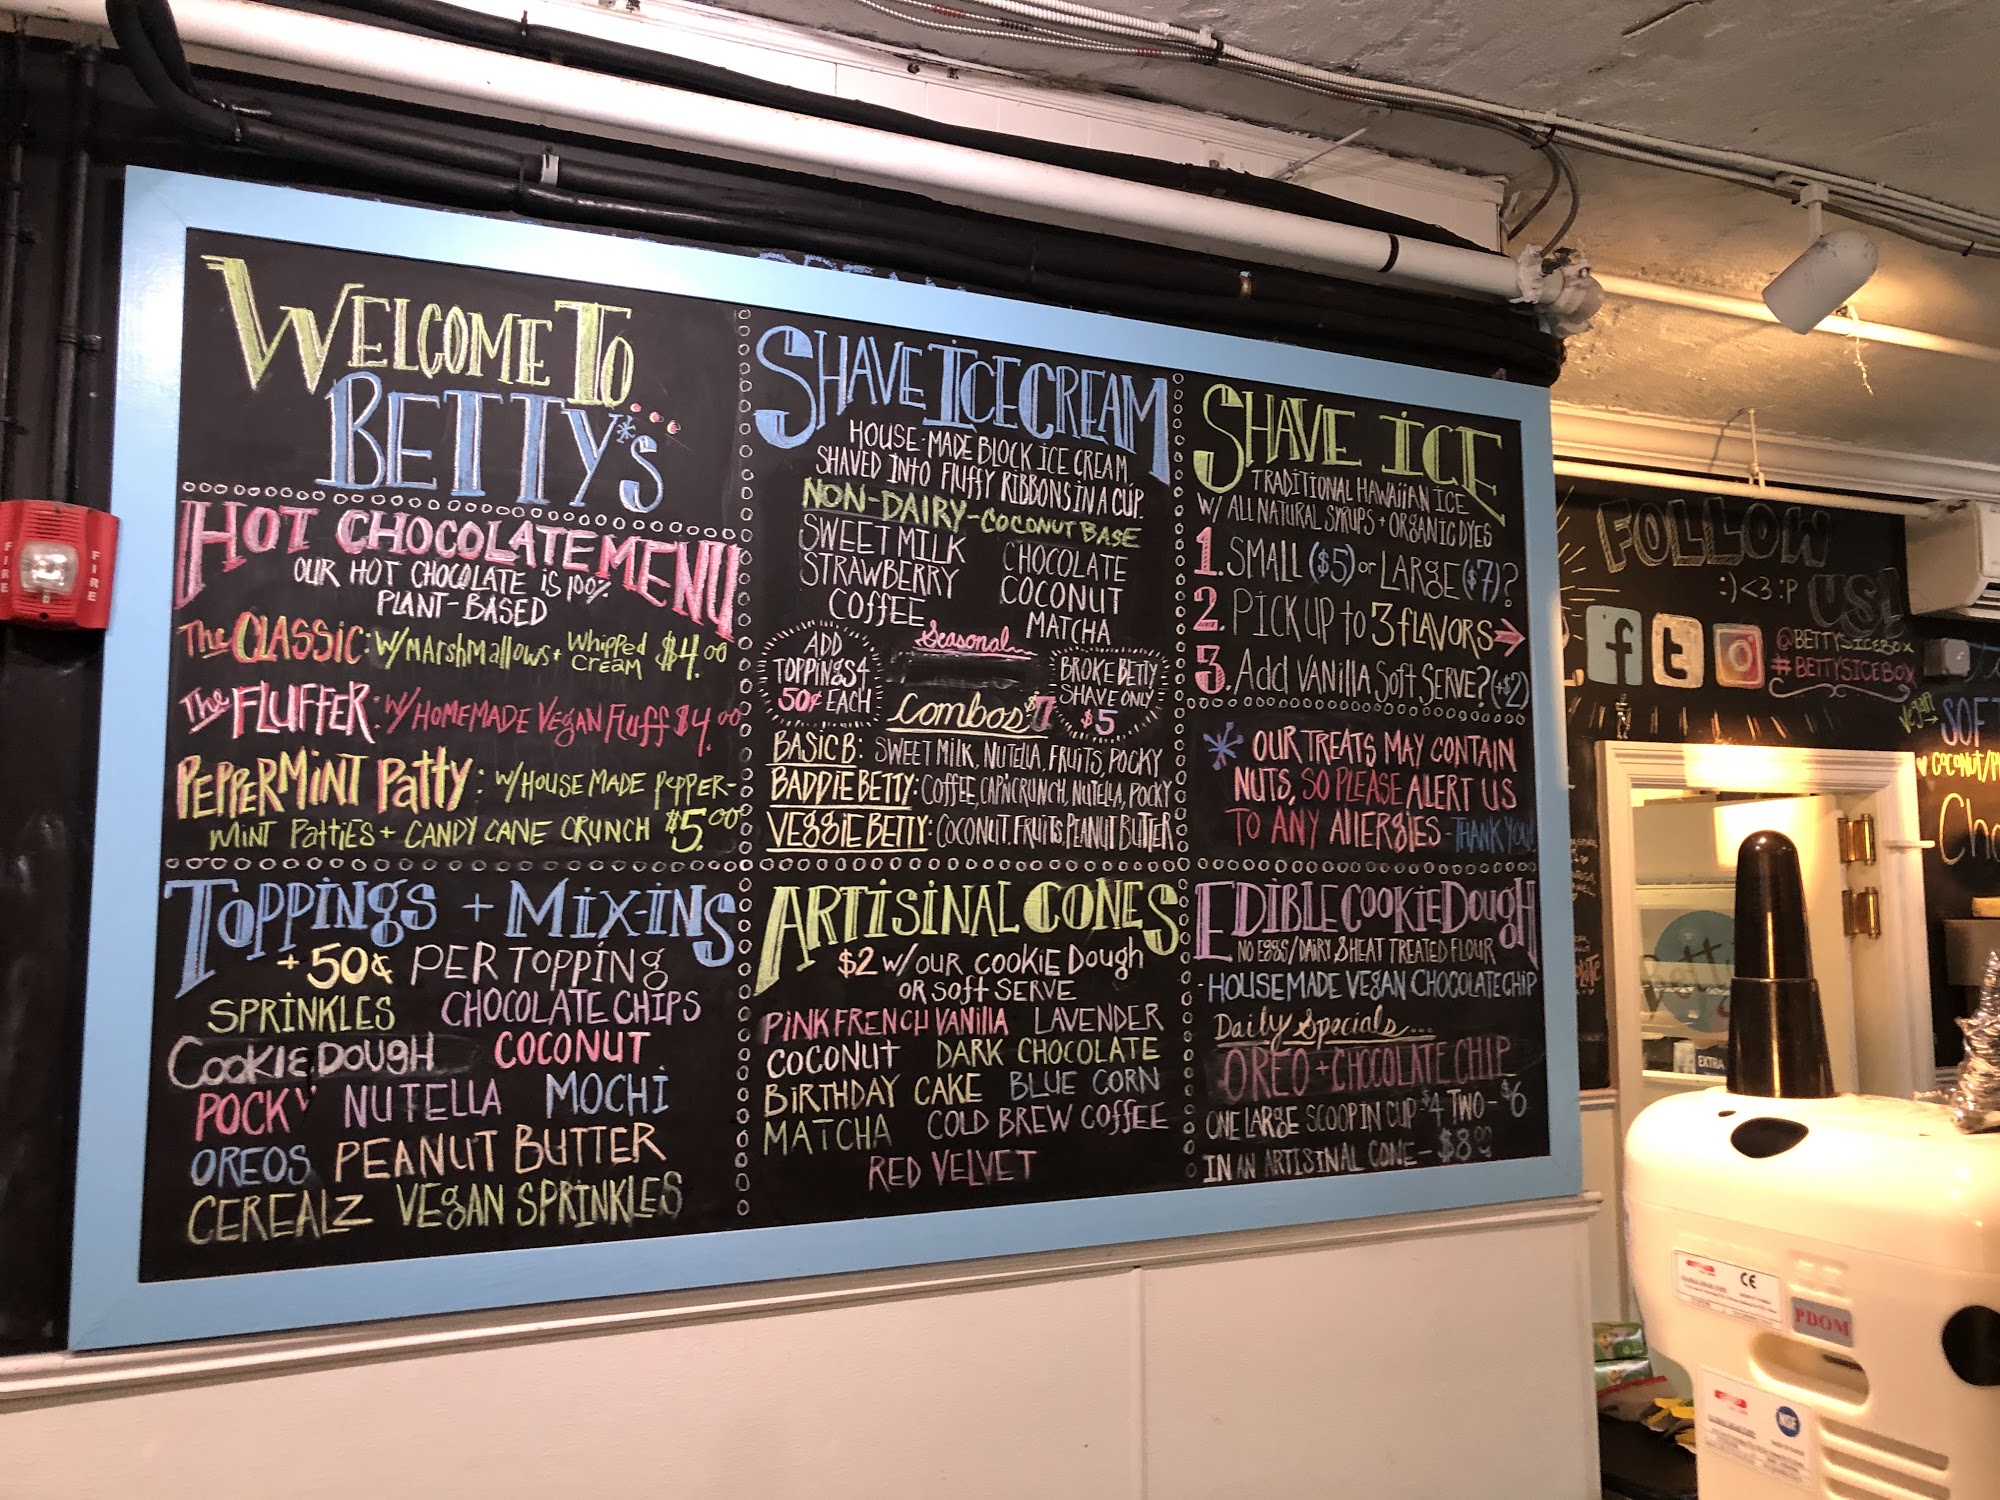 WELCOME TO
BETTY'S
HOT CHOCOLATE MENU
OUR HOT CHOCOLATE IS 100%
PLANT-BASED
The CLASSIC: W/ MARSHMALLOWS + WHIPPED CREAM $4.00
The FLUFFER: W/ HOMEMADE VEGAN FLUFF $4.00
PEPPERMINT PATTY: W/ HOUSE MADE PEPPER-
MINT PATTIES + CANDY CANE CRUNCH $5.00
TOPPINGS + MIX-INS
+ 50¢ PER TOPPING
SPRINKLES CHOCOLATE CHIPS
COOKIE DOUGH COCONUT
POCKY NUTELLA MOCHI
OREOS PEANUT BUTTER
CEREALZ VEGAN SPRINKLES
SHAVE ICE CREAM
HOUSE-MADE BLOCK ICE CREAM,
SHAVED INTO FLUFFY RIBBONS IN A CUP.
NON-DAIRY-COCONUT BASE
SWEET MILK CHOCOLATE
STRAWBERRY COCONUT
COFFEE MATCHA
Seasonal
ADD
TOPPINGS
50¢ EACH
BROKE BETTY
SHAVE ONLY
$5
Combos $7
BASIC B: SWEET MILK, NUTELLA, FRUITS, POCKY
BADDIE BETTY: COFFEE, CAP'N CRUNCH, NUTELLA, POCKY
VEGGIE BETTY: COCONUT, FRUITS, PEANUT BUTTER
ARTISINAL CONES
$2 W/ OUR COOKIE DOUGH
OR SOFT SERVE
PINK FRENCH VANILLA LAVENDER
COCONUT DARK CHOCOLATE
BIRTHDAY CAKE BLUE CORN
MATCHA COLD BREW COFFEE
RED VELVET
SHAVE ICE
TRADITIONAL HAWAIIAN ICE
W/ ALL NATURAL SYRUPS + ORGANIC DYES
1. SMALL ($5) or LARGE ($7)?
2. PICK UP TO 3 FLAVORS →
3. Add VANILLA SOFT SERVE? (+$2)
* OUR TREATS MAY CONTAIN
NUTS, SO PLEASE ALERT US
TO ANY AllERGIES - THANK YOU!
EDIBLE COOKIE DOUGH
NO EGGS/DAIRY & HEAT TREATED FLOUR
- HOUSEMADE VEGAN CHOCOLATE CHIP
Daily Specials...
OREO + CHOCOLATE CHIP
ONE LARGE SCOOP IN CUP $4 TWO- $6
IN AN ARTISINAL CONE - $8.00
FOLLOW
:) <3 :P US!
f t
@BETTYSICEBOX
#BETTYSICEBOX
Vegan
SOFT
COCONUT/
FIRE
FIRE
EXTRA
CE
PDOM
NSF